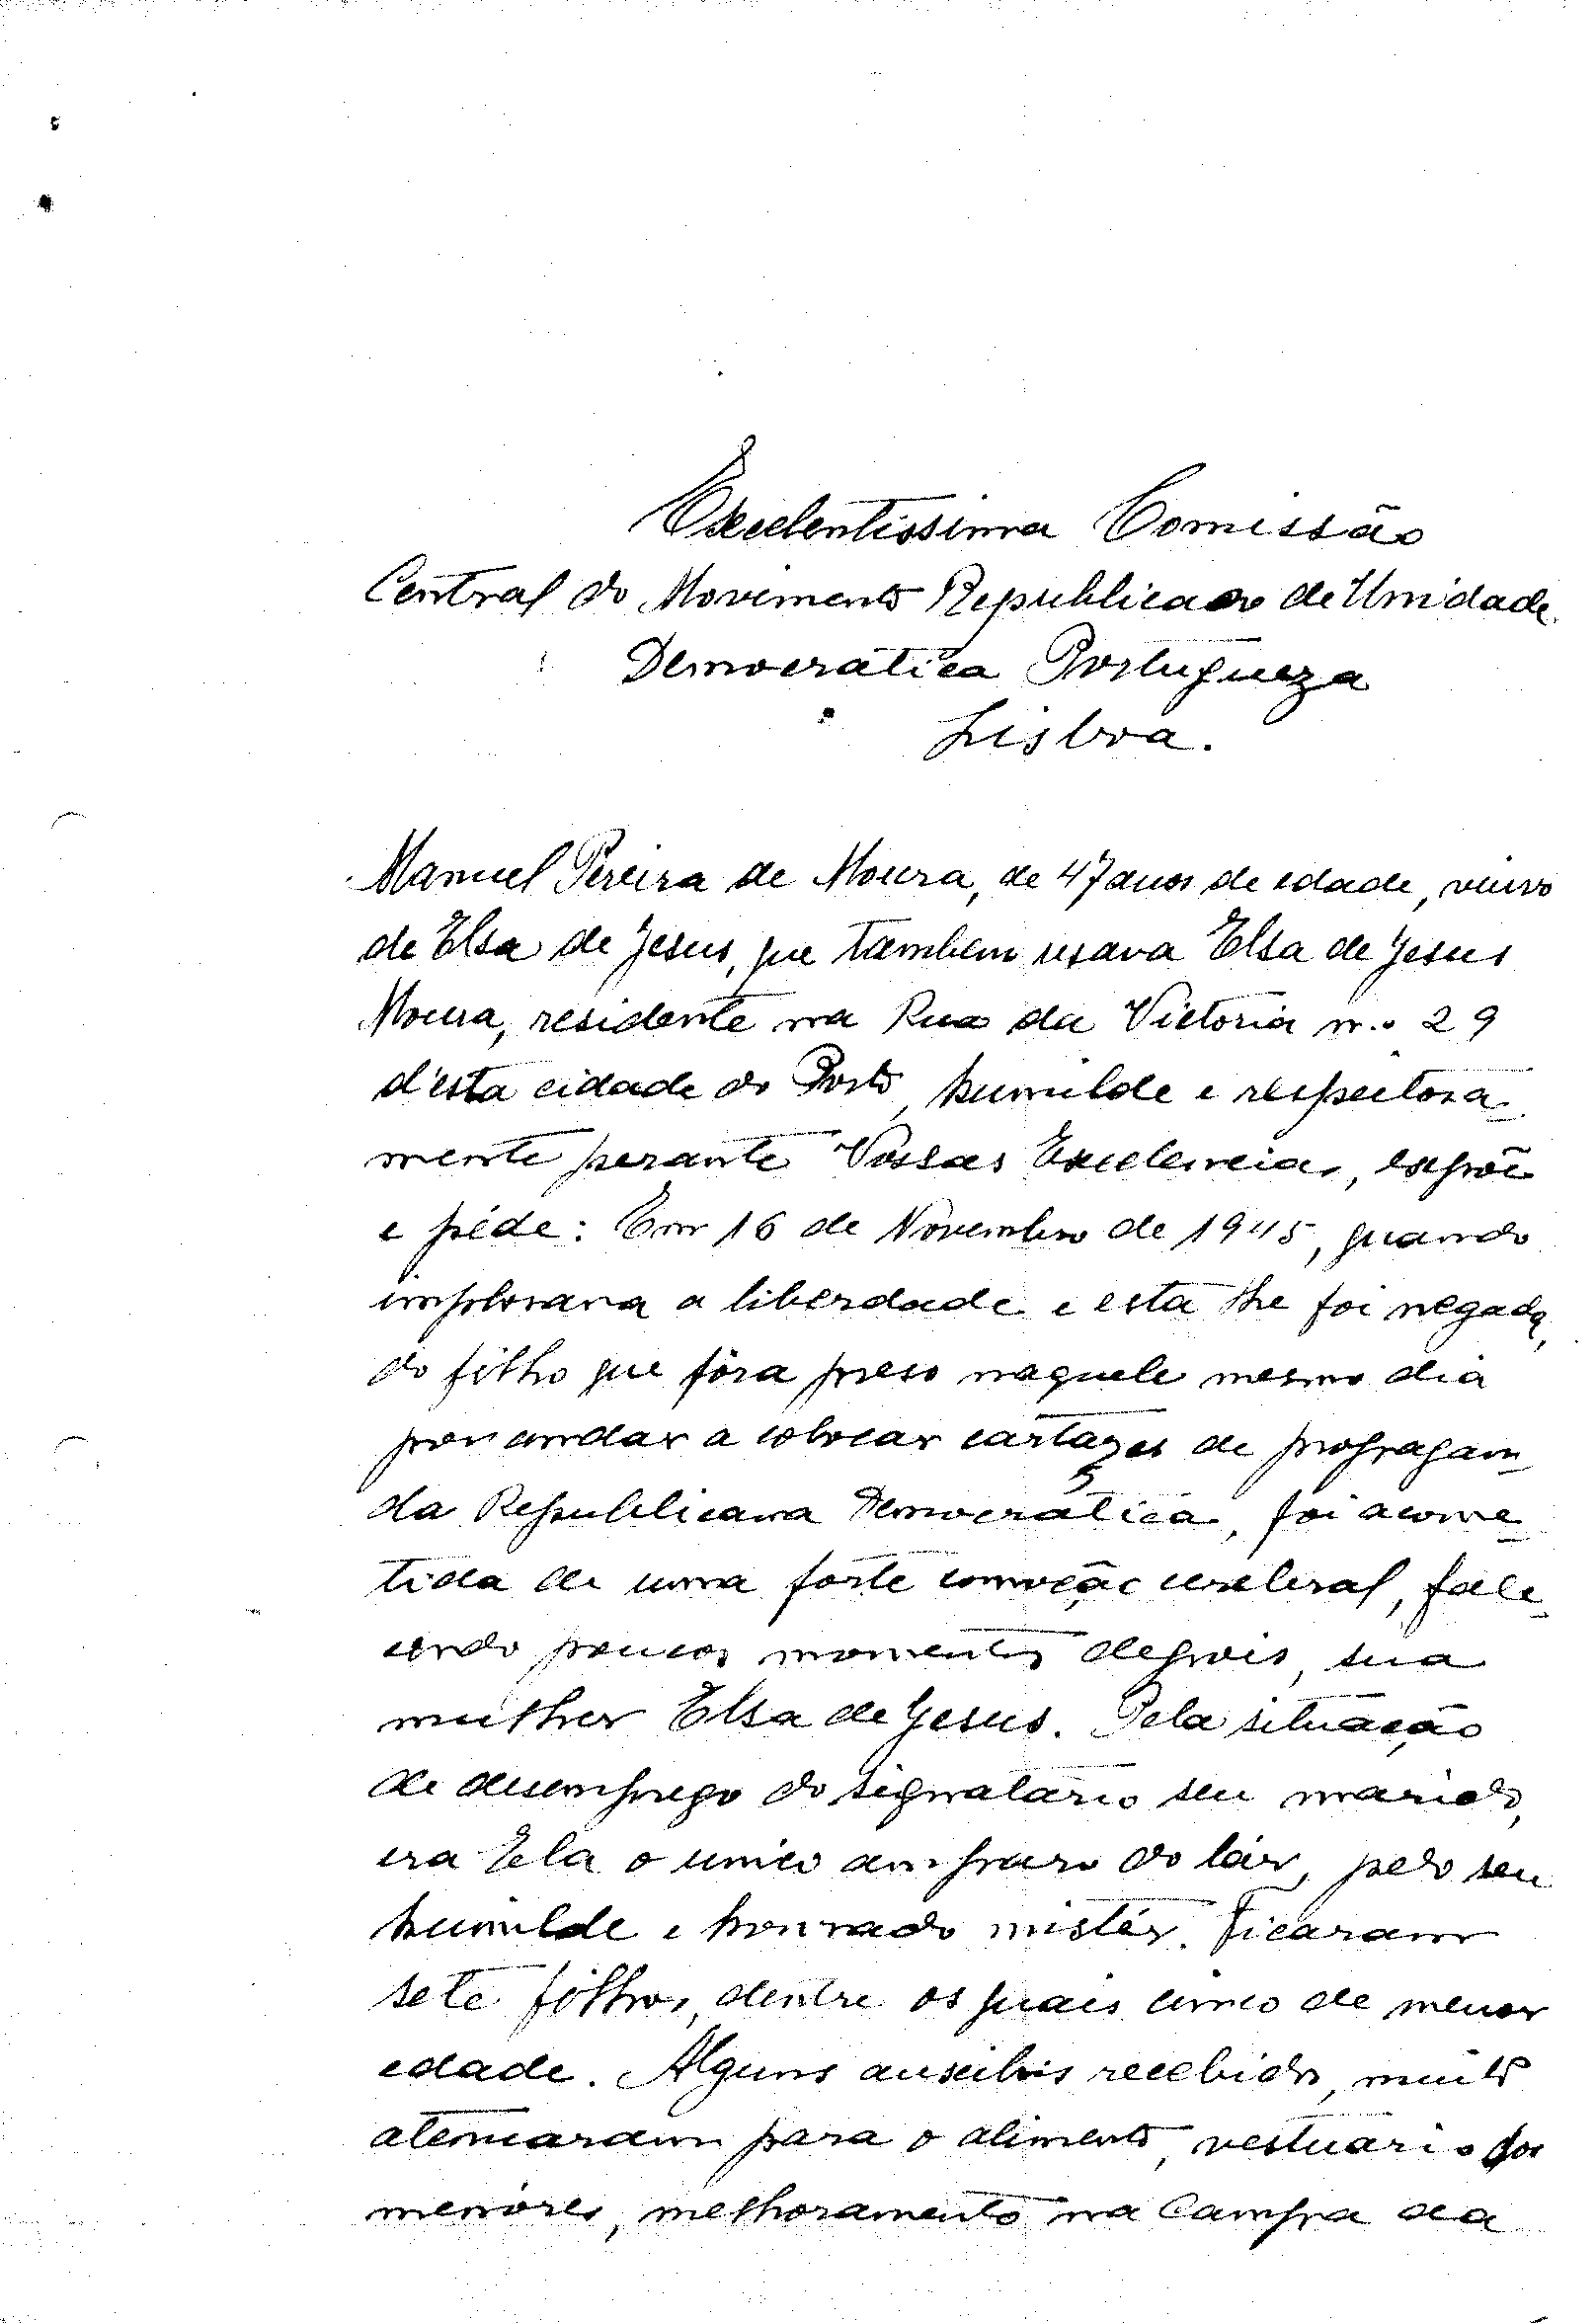 Excelentissima Comissão
Central do Movimento Republicano de Unidade
Democratica Portugueza
Lisboa.
Manuel Pereira de Moura, de 47 anos de edade, viuvo
de Elsa de Jesus, que tambem usava Elsa de Jesus
Moura, residente na Rua da Victoria n.º 29
d'esta cidade do Porto, humilde e respeitosa
mente perante Vossas Excelencias, expõe
e péde: Em 16 de Novembro de 1945, quando
implorava a liberdade e esta lhe foi negada,
do filho que fôra preso naquele mesmo dia
por andar a colocar cartazes de propagan
da Republicana Democratica, foi acome
tida de uma forte comoção cerebral, fale
cendo poucos momentos depois, sua
mulher Elsa de Jesus. Pela situação
de desemprego do signatario seu marido,
era Ela o unico amparo do lár, pelo seu
humilde e honrado mistér. Ficaram
sete filhos, dentre os quais cinco de menor
edade. Alguns auxilios recebidos, muito
atenuaram para o alimento, vestuario dos
menores, melhoramento na Campa da